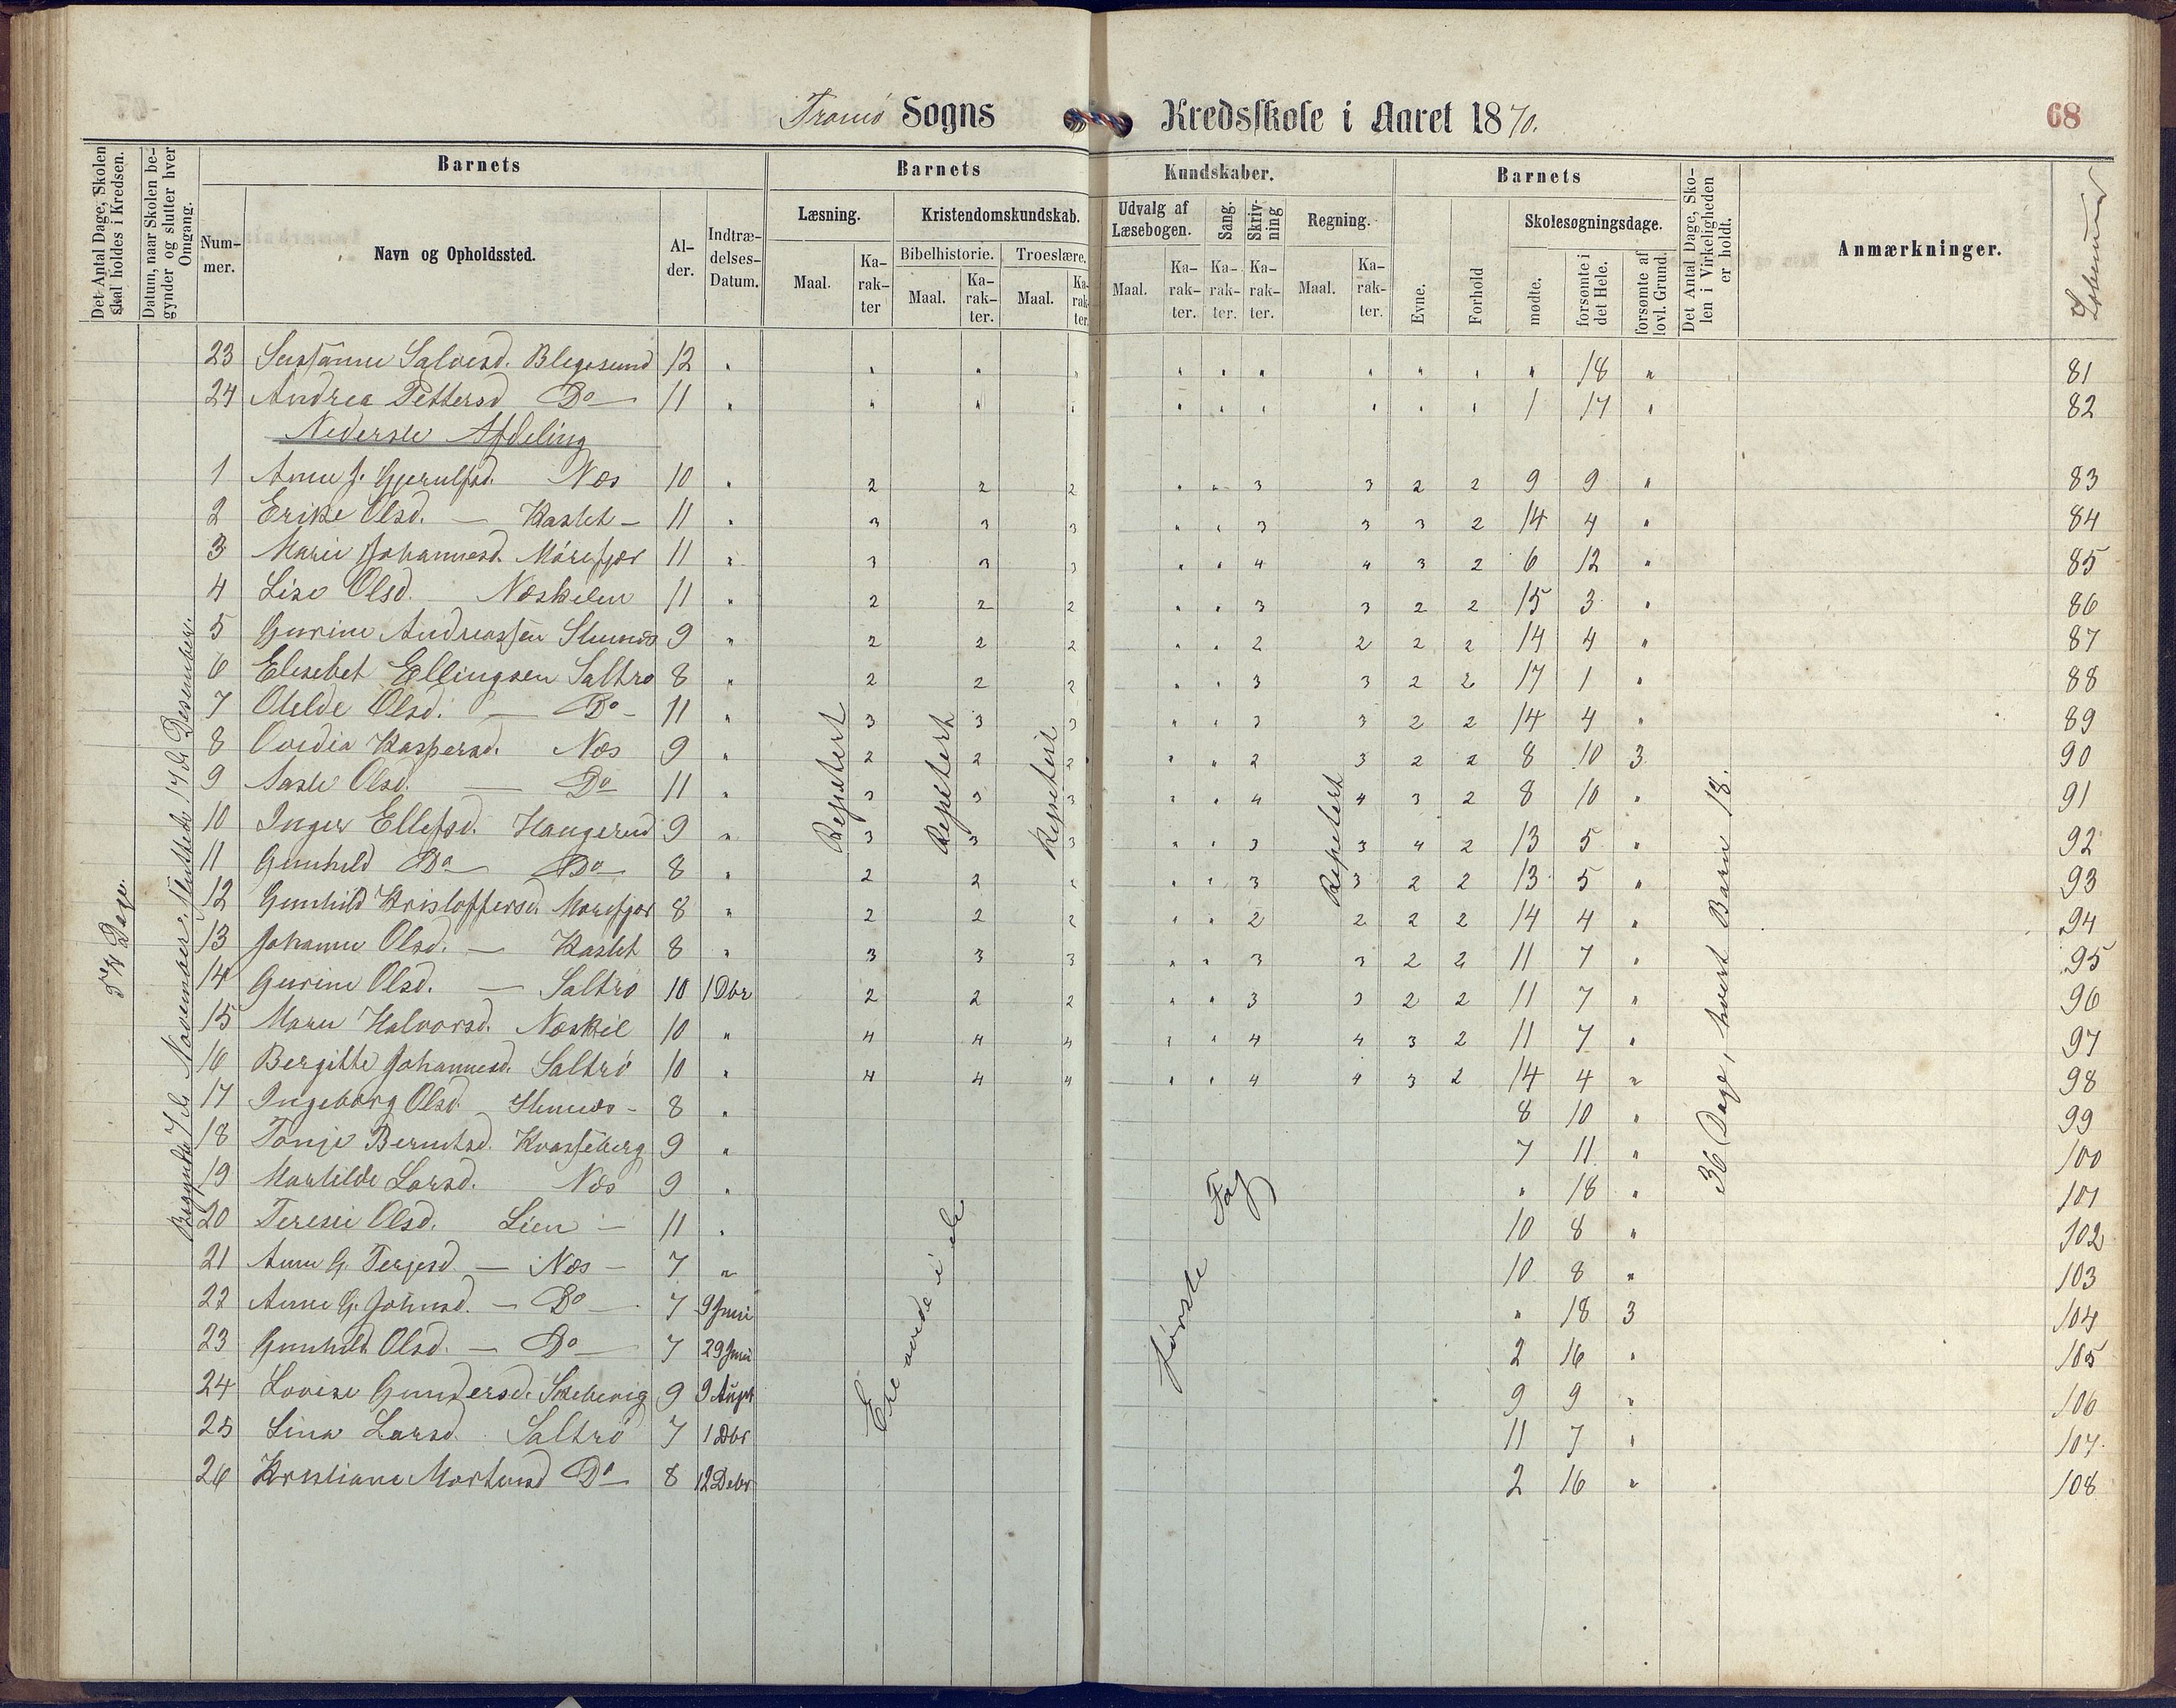 Tromø Sogns Kredsskole i Aaret 1870.
68
Det Antal Dage, Skolen skal holdes i Kredsen.
Datum, naar Skolen begynder og slutter hver Omgang.
Barnets
Barnets
Kundskaber.
Barnets
Det Antal Dage, Skolen i Virkeligheden er holdt.
Anmærkninger.
Nummer.
Navn og Opholdssted.
Alder.
Indtrædelses-Datum.
Læsning.
Kristendomskundskab.
Udvalg af Læsebogen.
Sang.
Skrivning
Regning.
Evne.
Forhold
Skolesøgningsdage.
Bibelhistorie.
Troeslære.
Maal.
Karakter
Maal.
Karakter.
Maal.
Karakter.
Maal.
Karakter.
Karakter.
Karakter.
Maal.
Karakter.
mødte.
forsømte i det Hele.
forsømte af lovl. Grund.
23 Susanne Salvesd. 12 " " " " " " " " " " " 18 " 81
24 Andrea Pettersd Do 11 " " " " " " " " " " 1 17 " 82
Nederste Afdeling
1 Anne J. Gjerulfsd. Næs 10 " 2 2 2 " " 3 3 2 2 9 9 " 83
2 Erike Olsd. — Kastet — 11 " 3 3 3 " " 3 3 3 2 14 4 " 84
3 Marie Johannesd. Mórefjær 11 " 3 3 3 " " 4 4 3 2 6 12 " 85
4 Lise Olsd. Næskilen 11 " 2 2 2 " " 3 3 2 2 15 3 " 86
5 Gurine Andreassen 9 " 2 2 2 " " 2 2 2 2 14 4 " 87
6 Elesebet Ellingsen Saltrø 8 " 2 2 2 " " 3 3 2 2 17 1 " 88
7 Olsd. — Do — 11 " 3 3 3 " " 3 3 2 2 14 4 " 89
8 Ovedia Kaspersd. Næs 9 " 2 2 2 " " 2 3 2 2 8 10 3 90
9 Aaste Olsd. — Do 11 " 3 3 3 " " 4 4 3 2 8 10 " 91
10 Inger Ellefsd. Haugerud 9 " 3 3 3 " " 3 3 4 2 13 5 " 92
11 Gunhild Do Do 8 " 2 2 " " " 3 3 2 2 13 5 " 93
12 Gunhild Kristoffersd. Morefjær 8 " 2 2 2 " " 2 2 2 2 14 4 " 94
13 Johanne Olsd. — Kastet 8 " 3 3 3 " " 3 3 2 2 11 7 " 95
14 Gurine Olsd. — Saltrø 10 1 Dbr 2 2 2 " " 3 3 2 2 11 7 " 96
15 Maren Halvorsd. Næskil 10 " 4 4 4 " " 4 4 3 2 11 7 " 97
16 Bergitte Johannesd. Saltrø 10 " 4 4 4 " " 4 4 3 2 14 4 " 98
17 Ingeborg Olsd. 8 " 8 10 " 99
18 Tonje Berntsd. Kvasseberg 9 " 7 11 " 100
19 Martilde Larsd. Næs 9 " " 18 " 101
20 Teresie Olsd. Lien — 11 " 10 8 " 102
21 Anne G. Terjesd — Næs — 7 " 10 8 " 103
22 Anne G. Johnsd. — Do — 7 9 Juni " 18 3 104
23 Gunhild Olsd. — Do — 7 29 Juni 2 16 " 105
24 Lovise Gundersd. 9 9 Augst 9 9 " 106
25 Lina Larsd. Saltrø 7 1 Dbr 11 7 " 107
26 Kristiane Mortensd Do 8 12 Debr 2 16 " 108
Dage.
Begyndte 7de November, sluttede 17de Desember.
Repetert
Repetert
Repetert
Repetert
36 Dage, hvert Barn 18.
Ere øvede i de første Fag